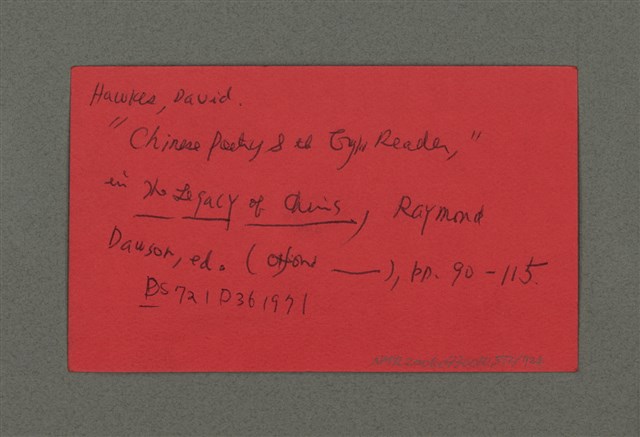 Hawkes, David.
"Chinese Poetry & the English Reader,"
in The Legacy of China, Raymond
Dawson, ed. (Oxford ___), pp. 90-115.
DS721 D36 1971